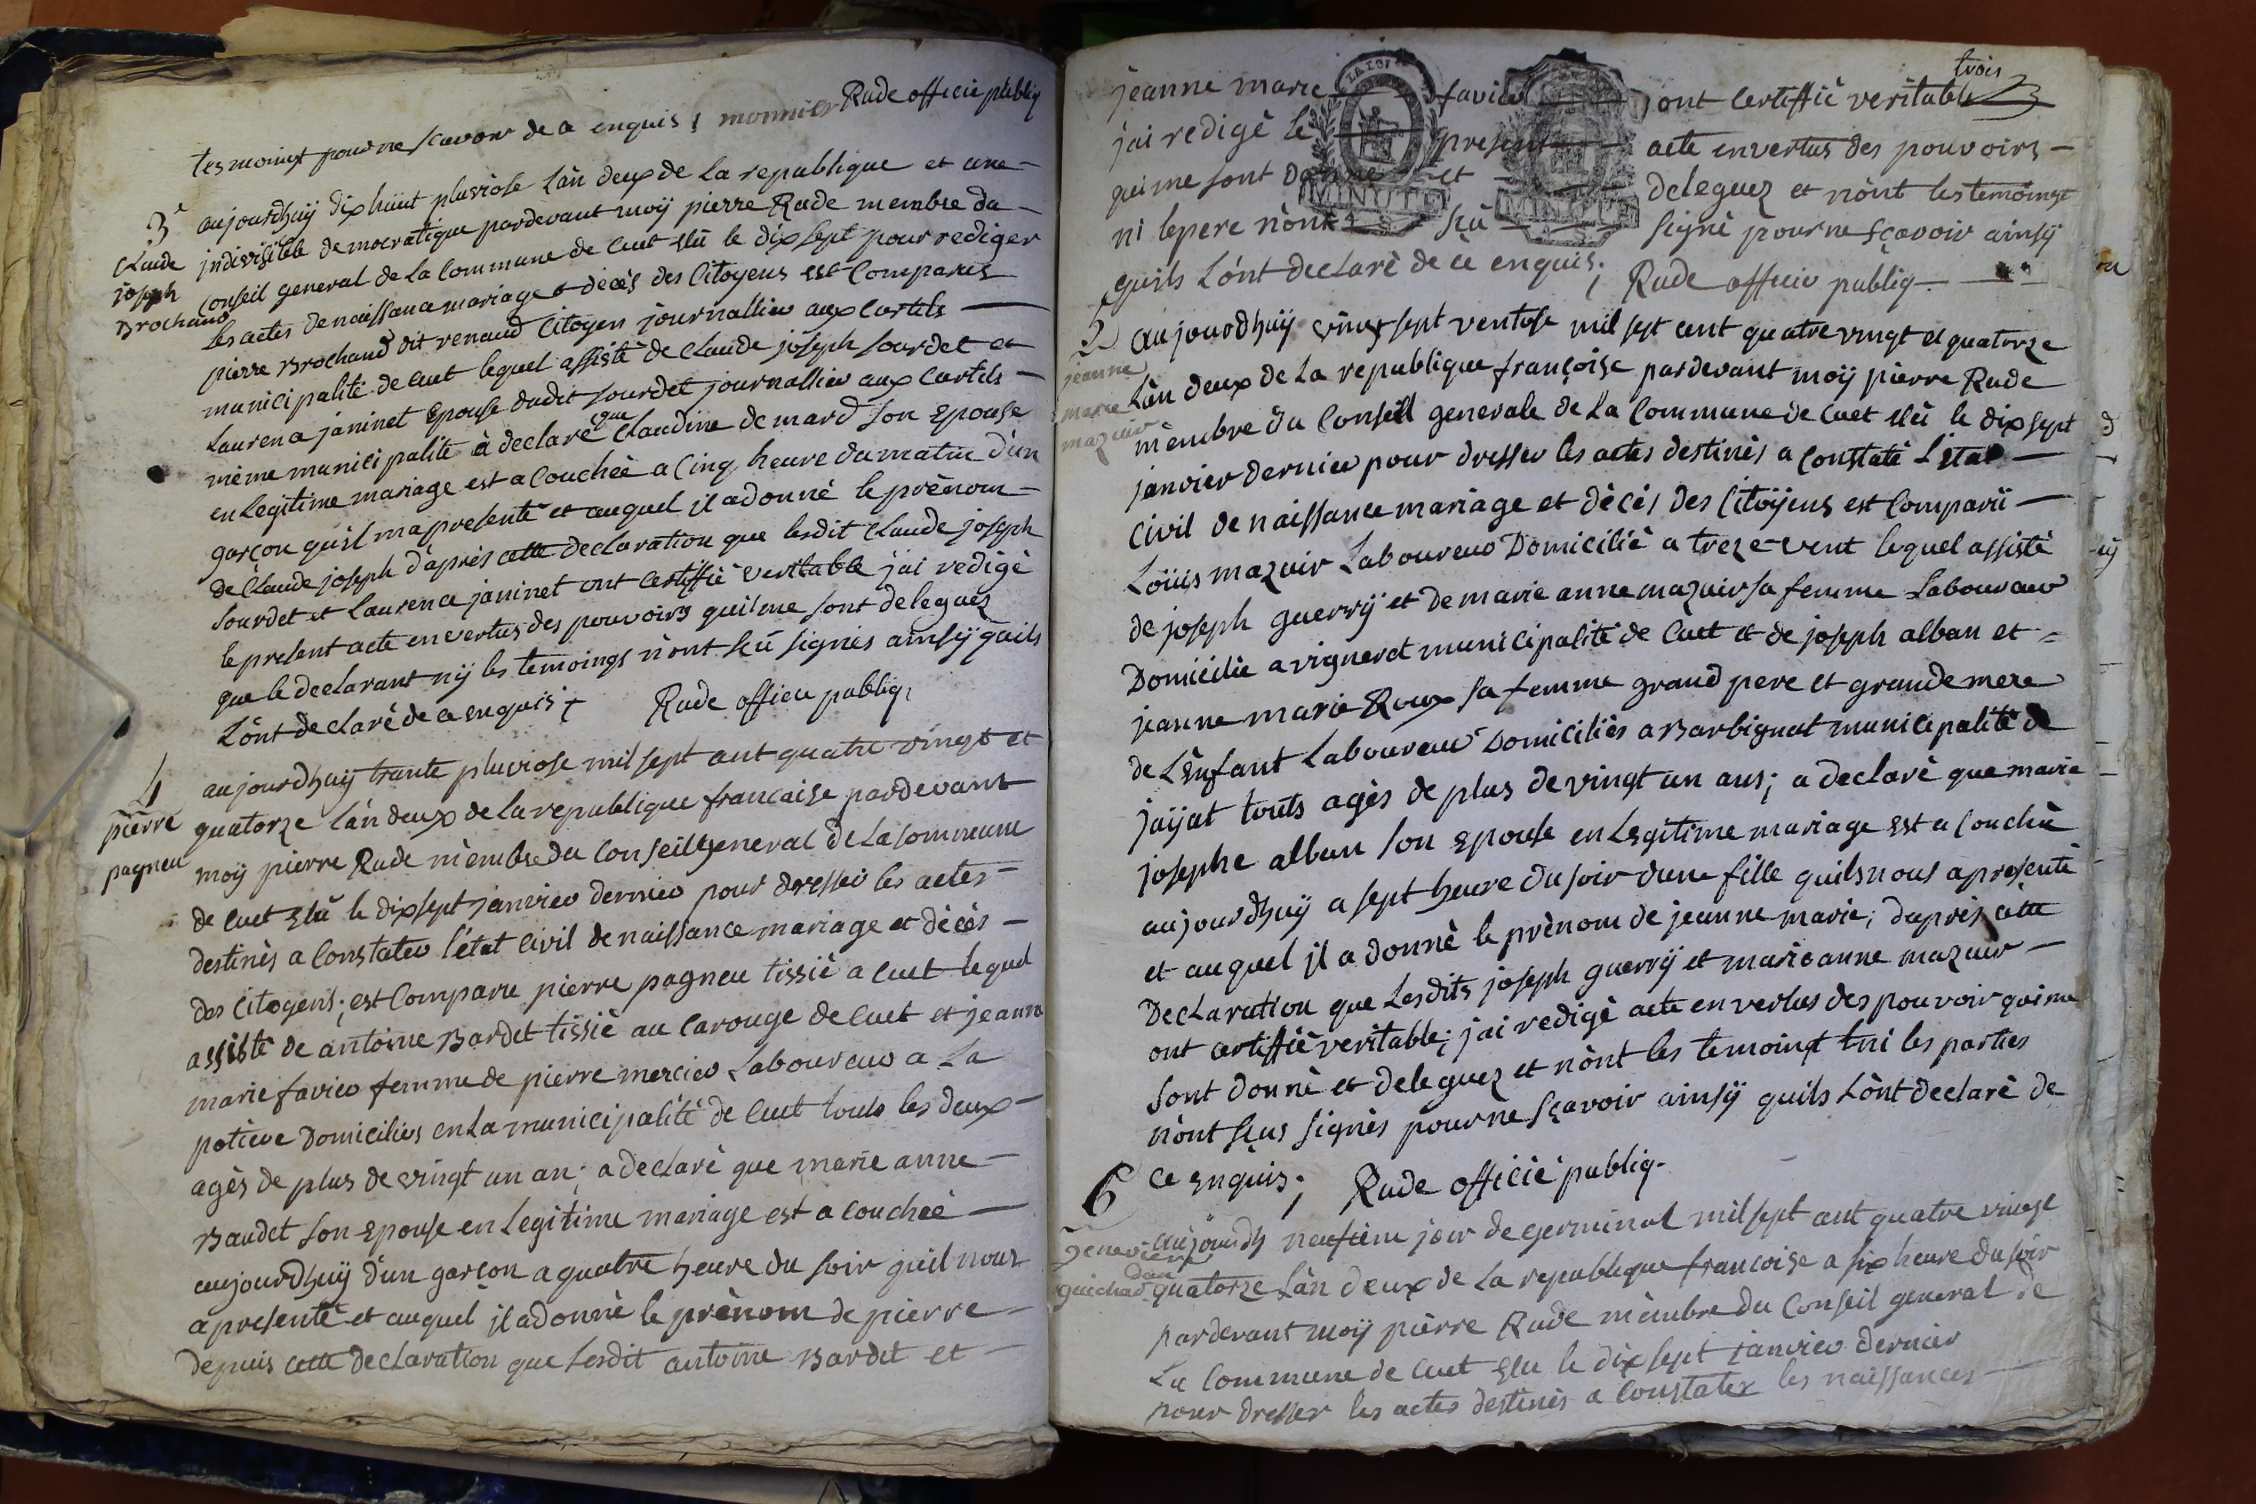 tesmoingt pour ne scavoir de ce enquis ; monnier Rude officié publiq
3e aujourdhuÿ dix huit pluviose Làn deux de La republique et une
Claude joseph Brochand
jndivisible democratique pardevant moÿ pierre Rude membre du
Conseil general de La Commune de Cuet elû le dix sept pour rediger
les actes de naissance mariage et décès des Citoyens est Comparus
pierre Brochand dit renaud Citoÿen journallier aux Curtils
municipalité de Cuet lequel assisté de Claude joseph sourdet et
Laurence janinet Epouse dudit sourdet journallier aux Curtils
même municipalité à declaré que Claudine demard son Epouse
en Legitime mariage est acouchèe a Cinq heure du matin d'un
garçon quil ma presenté et auquel il a donné le prènom
de Claude joseph d'après cette declaration que lesdit Claude joseph
sourdet et Laurence janinet ont Certiffié veritable j'ai redigè
le present acte en vertus des pouvoirs quil me sont deleguez
que le declarant nÿ les temoings n'ont sçû signés ainsÿ quils
L'ònt declaré de ce enquis Rude officié publiq
4 pierre pagneu
aujourdhuÿ trante pluviose mil sept cent quatre vingt et
quatorze Làn deux de la republique francaise pardevant
moÿ pierre Rude mèmbre du Conseil general de La Commune
de Cuet elû le dix sept janvier dernier pour dresser les actes
destinès a Constater l'ètat civil de naissance mariage et décès
des Citoyens ; est Comparu pierre pagneu tissiè a Cuet lequel
assistè de antoine Bardet tissiè au Carouge de Cuet et jeanne
marie favier femme de pierre mercier Laboureur a La
potiere Domiciliés en La municipalitè de Cuet touts les deux
agès de plus de vingt un an ; a declaré que marie anne
Baudet son Epouse en Legitime mariage est acouchèe
aujourdhuÿ d'un garçon a quatre heure du soir quil nous
a presentè et auquel jl a donnè le prènom de pierre
depuis cette declaration que Lesdit antoine Bardet et
trois
jeanne marie favier ont Certiffiè veritable
j'ai redigè le present acte en vertus des pouvoirs
qui me sont donnè et deleguez et n'ònt les temoingt
ni le pere n'ònt sçû signè pour ne sçavoir ainsÿ
quils L'ònt declarè de ce enquis ; Rude officié publiq
LA LOI
MINUTE
MINUTE
jeanne marie mazuir
aujourdhuÿ vingt sept ventose mil sept cent quatre vingt et quatorze
Làn deux de La republique françoise pardevant moÿ pierre Rude
mèmbre du Conseill generale de La Commune de Cuet elû le dix sept
janvier dernier pour dresser les actes destinès a Constaté L'ètat
Civil de naissance mariage et dècès des Citoÿens est Comparû
Loüis mazuir Laboureur Domiciliè a treze vent lequel assistè
de joseph guerrÿ et de marie anne mazuir sa femme Laboureur
Domiciliè a vigneret municipalité de Cuet et de joseph alban et
jeanne marie Roux sa femme grand pere et grande mere
de L'Enfant Laboureur Domiciliès a Barbignat municipalitè de
jaÿat touts agès de plus de vingt un ans ; a declarè que marie
josephe alban son Epouse en Legitime mariage est acouchè
aujourdhuÿ a sept heure du soir dune fille quils nous a presentè
et auquel jl a donnè le prènom de jeanne marie ; d'après cette
Declaration que Lesdits joseph guerrÿ et marie anne mazuir
ont certiffiè veritable ; j'ai redigè acte en vertus des pouvoir qui me
sont donnè et deleguez et n'ònt les temoingt ni les parties
n'ònt sçus signès pour ne sçavoir ainsÿ quils L'ònt declarè de
ce enquis ; Rude officié publiq
6 guichard
aujourdh neufieme jour de germinal mil sept cent quatre vingt
quatorze Làn deux de La republique francoise a six heure du soir
pardevant moÿ pierre Rude mèmbre du Conseil general de
La Commune de Cuet elu le dix sept janvier dernier
pour dresser les actes destinès a Constater les naissances